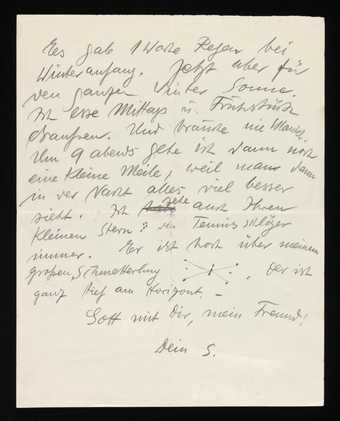 Es gab 1 Woche Regen bei
Winteranfang. Jetzt aber für
den ganzen Winter Sonne.
Ich esse Mittags u. Frühstück
draussen. Und bräune wie
Um 9 abends gehe ich dann noch
eine kleine Meile, weil man dann
in der Nacht alles viel besser
sieht. Ich sehe auch Ihren
kleinen Stern? den Tennisschläger
immer. Er ist hoch über meinem
großen Schmetterling , der ist
ganz tief am Horizont. –
Gott mit Dir, mein Freund!
Dein S.